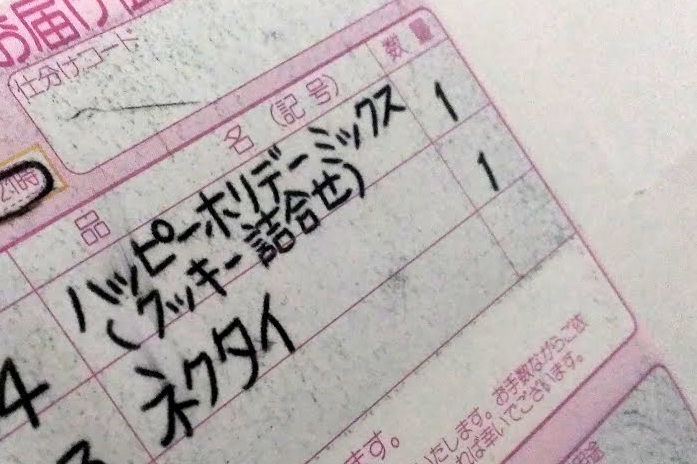 お届け
仕分けコード
21時
品名（記号）
数量
ハッピーホリデーミックス 1
(クッキー詰合せ)
ネクタイ 1
4
いたします。お手数ながらご依
れば幸いでございます。
ます。
途